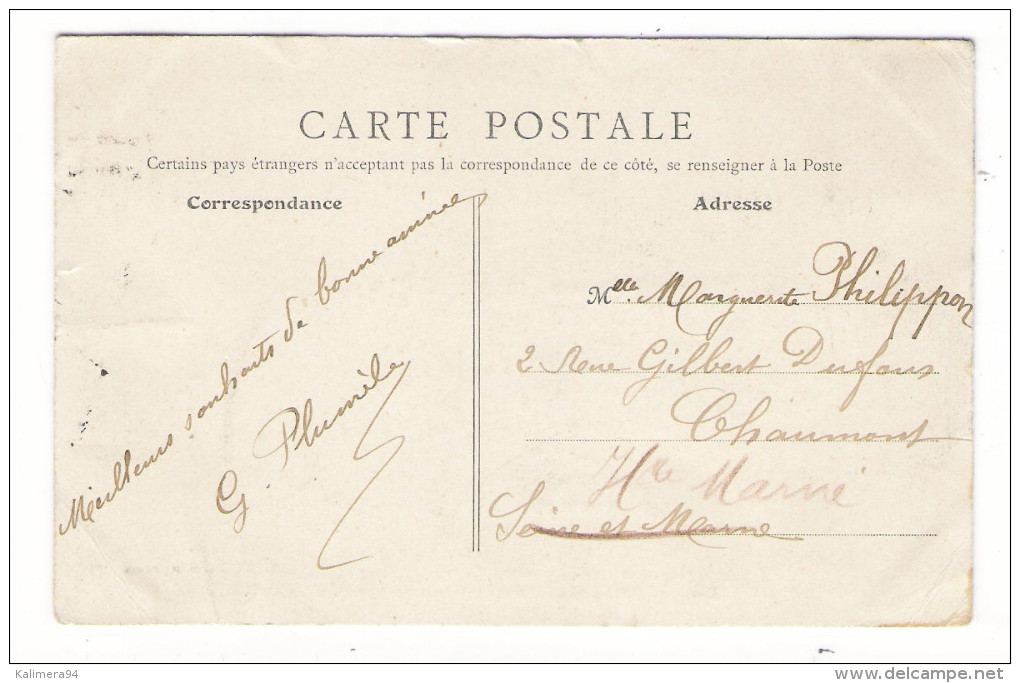 CARTE POSTALE
Certains pays étrangers n'acceptant pas la correspondance de ce côté, se renseigner à la Poste
Correspondance
Meilleurs souhaits de bonne année
G. Plumèle
Adresse
Melle Marguerite Philippon
2 Rue Gilbert Dufour
Chaumont
Hte Marne
Seine et Marne
Kalimera94
www.delcampe.net